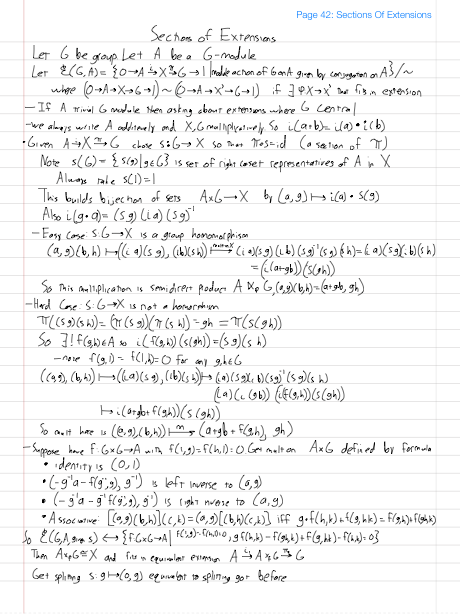 Page 42: Sections Of Extensions
Sections of Extensions
Let G be group. Let A be a G-module
Let ℰ(G,A) = {0→A→X→G→1 | module action of G on A given by conjugation on A}/~
where (0→A→X→G→1) ~ (0→A→X'→G→1) if ∃ φ:X→X' that fits in extension
- If A trivial G module then asking about extensions where G central
- we always write A additively and X,G multiplicatively. So i(a+b) = i(a)·i(b)
• Given A→X→G chose s:G→X so that π∘s=id (a section of π)
Note s(G) = {s(g)|g∈G} is set of right coset representatives of A in X
Always take s(1)=1
This builds bijection of sets A×G→X by (a,g)↦i(a)·s(g)
Also i(g·a) = (sg)(ia)(sg)⁻¹
- Easy case: s:G→X is a group homomorphism
(a,g)(b,h) ↦ ((ia)(sg),(ib)(sh)) ↦ (ia)(sg)(ib)(sg)⁻¹(sg)(sh) = (ia)(sg)(ib)(sh)
= (i(a+gb))(s(gh))
So this multiplication is semidirect product A ⋊ G, (a,g)(b,h)=(a+gb, gh)
- Hard Case: s:G→X is not a homorphism
π((sg)(sh)) = (π(sg))(π(sh)) = gh = π(s(gh))
So ∃! f(g,h)∈A so i(f(g,h))(s(gh)) = (sg)(sh)
- note f(g,1) = f(1,h) = 0 for any g,h∈G
((a,g),(b,h)) ↦ ((ia)(sg),(ib)(sh)) ↦ (ia)(sg)(ib)(sg)⁻¹(sg)(sh)
(ia)(i(gb))(i(f(g,h))(s(gh))
↦ i(a+gb+f(g,h))(s(gh))
So mult here is ((a,g),(b,h)) ↦ (a+gb+f(g,h), gh)
- Suppose have f:G×G→A with f(1,g)=f(h,1)=0 Get mult on A×G defined by formula
• identity is (0,1)
• (-g⁻¹a-f(g⁻¹,g), g⁻¹) is left inverse to (a,g)
• (-g⁻¹a-g⁻¹f(g,g⁻¹), g⁻¹) is right inverse to (a,g)
• Associative: [(a,g)(b,h)](c,k) = (a,g)[(b,h)(c,k)] iff g·f(h,k)+f(g,hk) = f(g,h)+f(gh,k)
So ℰ(G,A, given s) ↔ {f:G×G→A | f(1,g)=f(h,1)=0, gf(h,k)-f(gh,k)+f(g,hk)-f(g,h)=0}
Then A×G≅X and fits in equivalent extension A→A×G→G
Get splitting s:g↦(0,g) equivalent to splitting got before